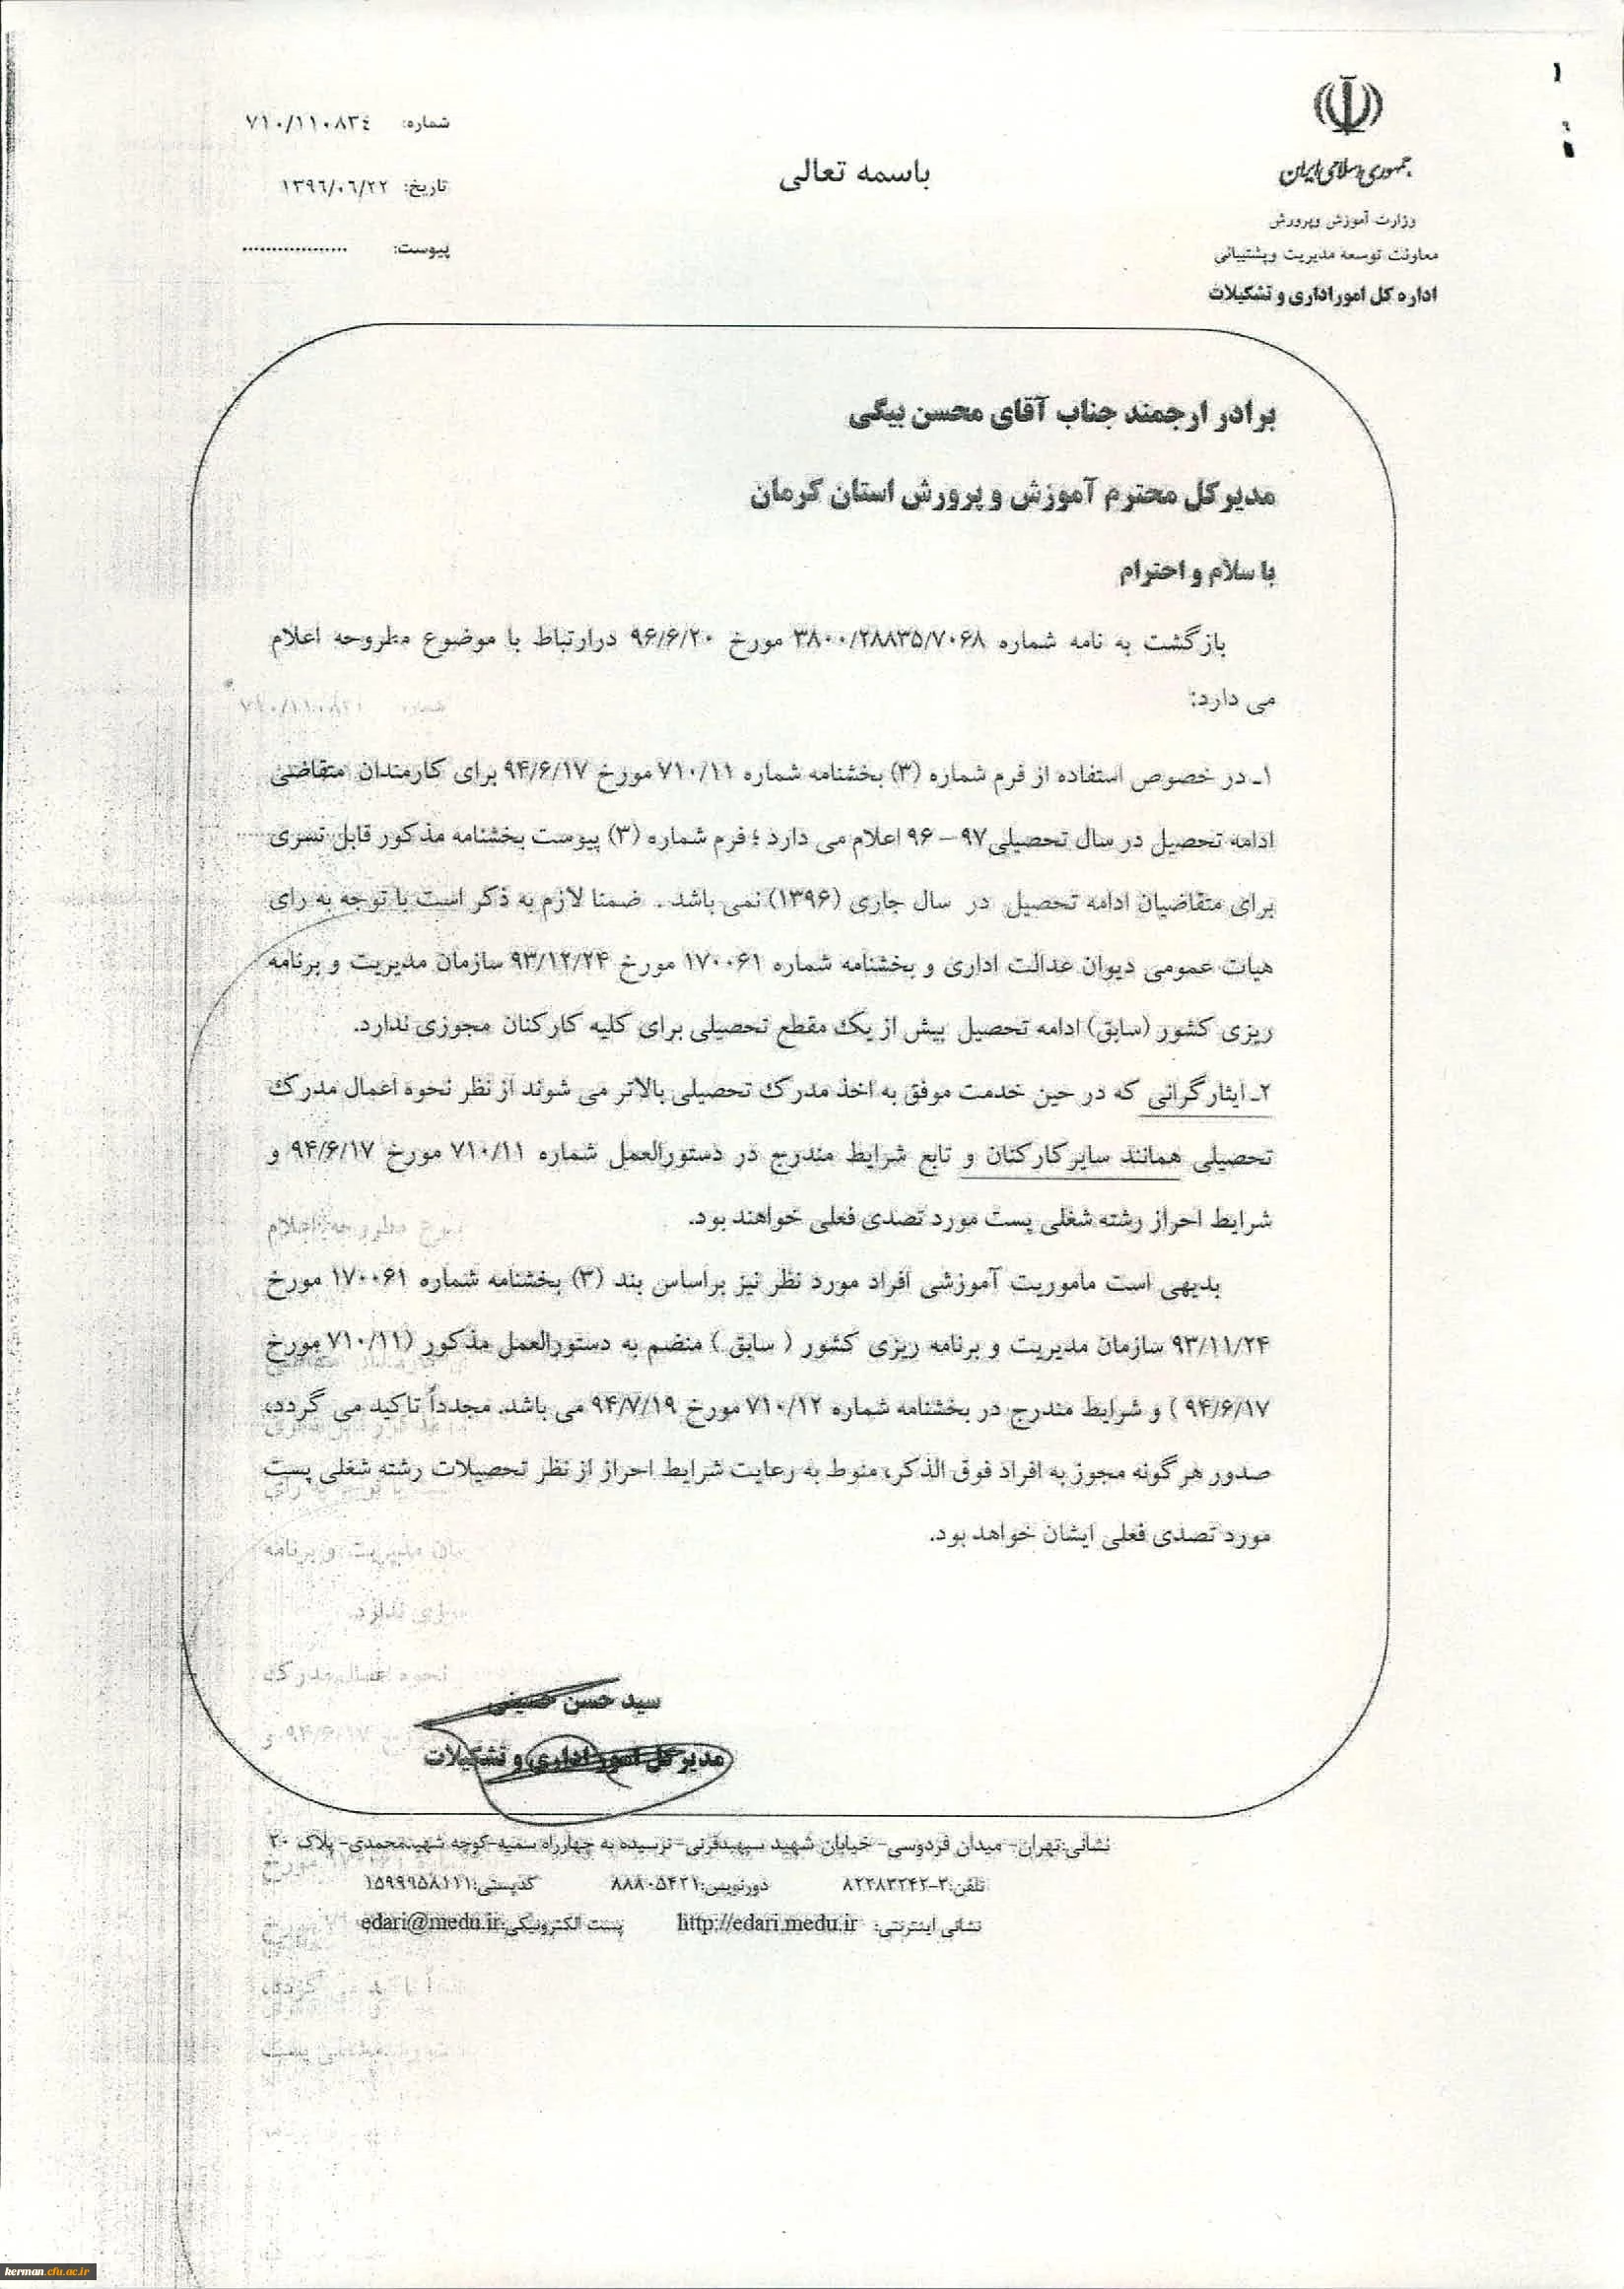 جمهوری اسلامی ایران
وزارت آموزش وپرورش
معاونت توسعه مدیریت وپشتیبانی
اداره کل اموراداری و تشکیلات
باسمه تعالی
شماره: ۷۱۰/۱۱۰۸۳٤
تاریخ: ۱۳۹٦/۰٦/۲۲
پیوست: ..................
برادر ارجمند جناب آقای محسن بیگی
مدیرکل محترم آموزش و پرورش استان کرمان
با سلام و احترام
بازگشت به نامه شماره ۳۸۰۰/۲۸۸۳۵/۷۰۶۸ مورخ ۹۶/۶/۲۰ درارتباط با موضوع مطروحه اعلام
می دارد:
۱ـ در خصوص استفاده از فرم شماره (۳) بخشنامه شماره ۷۱۰/۱۱ مورخ ۹۴/۶/۱۷ برای کارمندان متقاضی
ادامه تحصیل در سال تحصیلی ۹۷ – ۹۶ اعلام می دارد ؛ فرم شماره (۳) پیوست بخشنامه مذکور قابل تسری
برای متقاضیان ادامه تحصیل در سال جاری (۱۳۹۶) نمی باشد . ضمنا لازم به ذکر است با توجه به رای
هیات عمومی دیوان عدالت اداری و بخشنامه شماره ۱۷۰۰۶۱ مورخ ۹۳/۱۲/۲۴ سازمان مدیریت و برنامه
ریزی کشور (سابق) ادامه تحصیل بیش از یک مقطع تحصیلی برای کلیه کارکنان مجوزی ندارد.
۲ـ ایثارگرانی که در حین خدمت موفق به اخذ مدرک تحصیلی بالاتر می شوند از نظر نحوه اعمال مدرک
تحصیلی همانند سایرکارکنان و تابع شرایط مندرج در دستورالعمل شماره ۷۱۰/۱۱ مورخ ۹۴/۶/۱۷ و
شرایط احراز رشته شغلی پست مورد تصدی فعلی خواهند بود.
بدیهی است ماموریت آموزشی افراد مورد نظر نیز براساس بند (۳) بخشنامه شماره ۱۷۰۰۶۱ مورخ
۹۳/۱۱/۲۴ سازمان مدیریت و برنامه ریزی کشور ( سابق ) منضم به دستورالعمل مذکور (۷۱۰/۱۱ مورخ
۹۴/۶/۱۷ ) و شرایط مندرج در بخشنامه شماره ۷۱۰/۱۲ مورخ ۹۴/۷/۱۹ می باشد. مجدداً تاکید می گردد،
صدور هرگونه مجوز به افراد فوق الذکر، منوط به رعایت شرایط احراز از نظر تحصیلات رشته شغلی پست
مورد تصدی فعلی ایشان خواهد بود.
سید حسن حسینی
مدیرکل امور اداری و تشکیلات
نشانی:تهران- میدان فردوسی- خیابان شهید سپهبدقرنی- نرسیده به چهارراه سمیه-کوچه شهیدمحمدی- پلاک ۲۰
تلفن:۳-۸۲۲۸۳۲۴۲ دورنویس:۸۸۸۰۵۴۲۱ کدپستی:۱۵۹۹۹۵۸۱۱۱
نشانی اینترنتی: http://edari.medu.ir پست الکترونیکی:edari@medu.ir
kerman.cfu.ac.ir